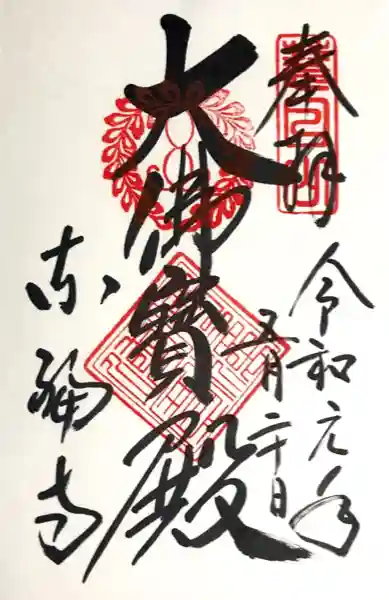 奉拝
令和元年
五月二十日
大佛寳殿
東福寺